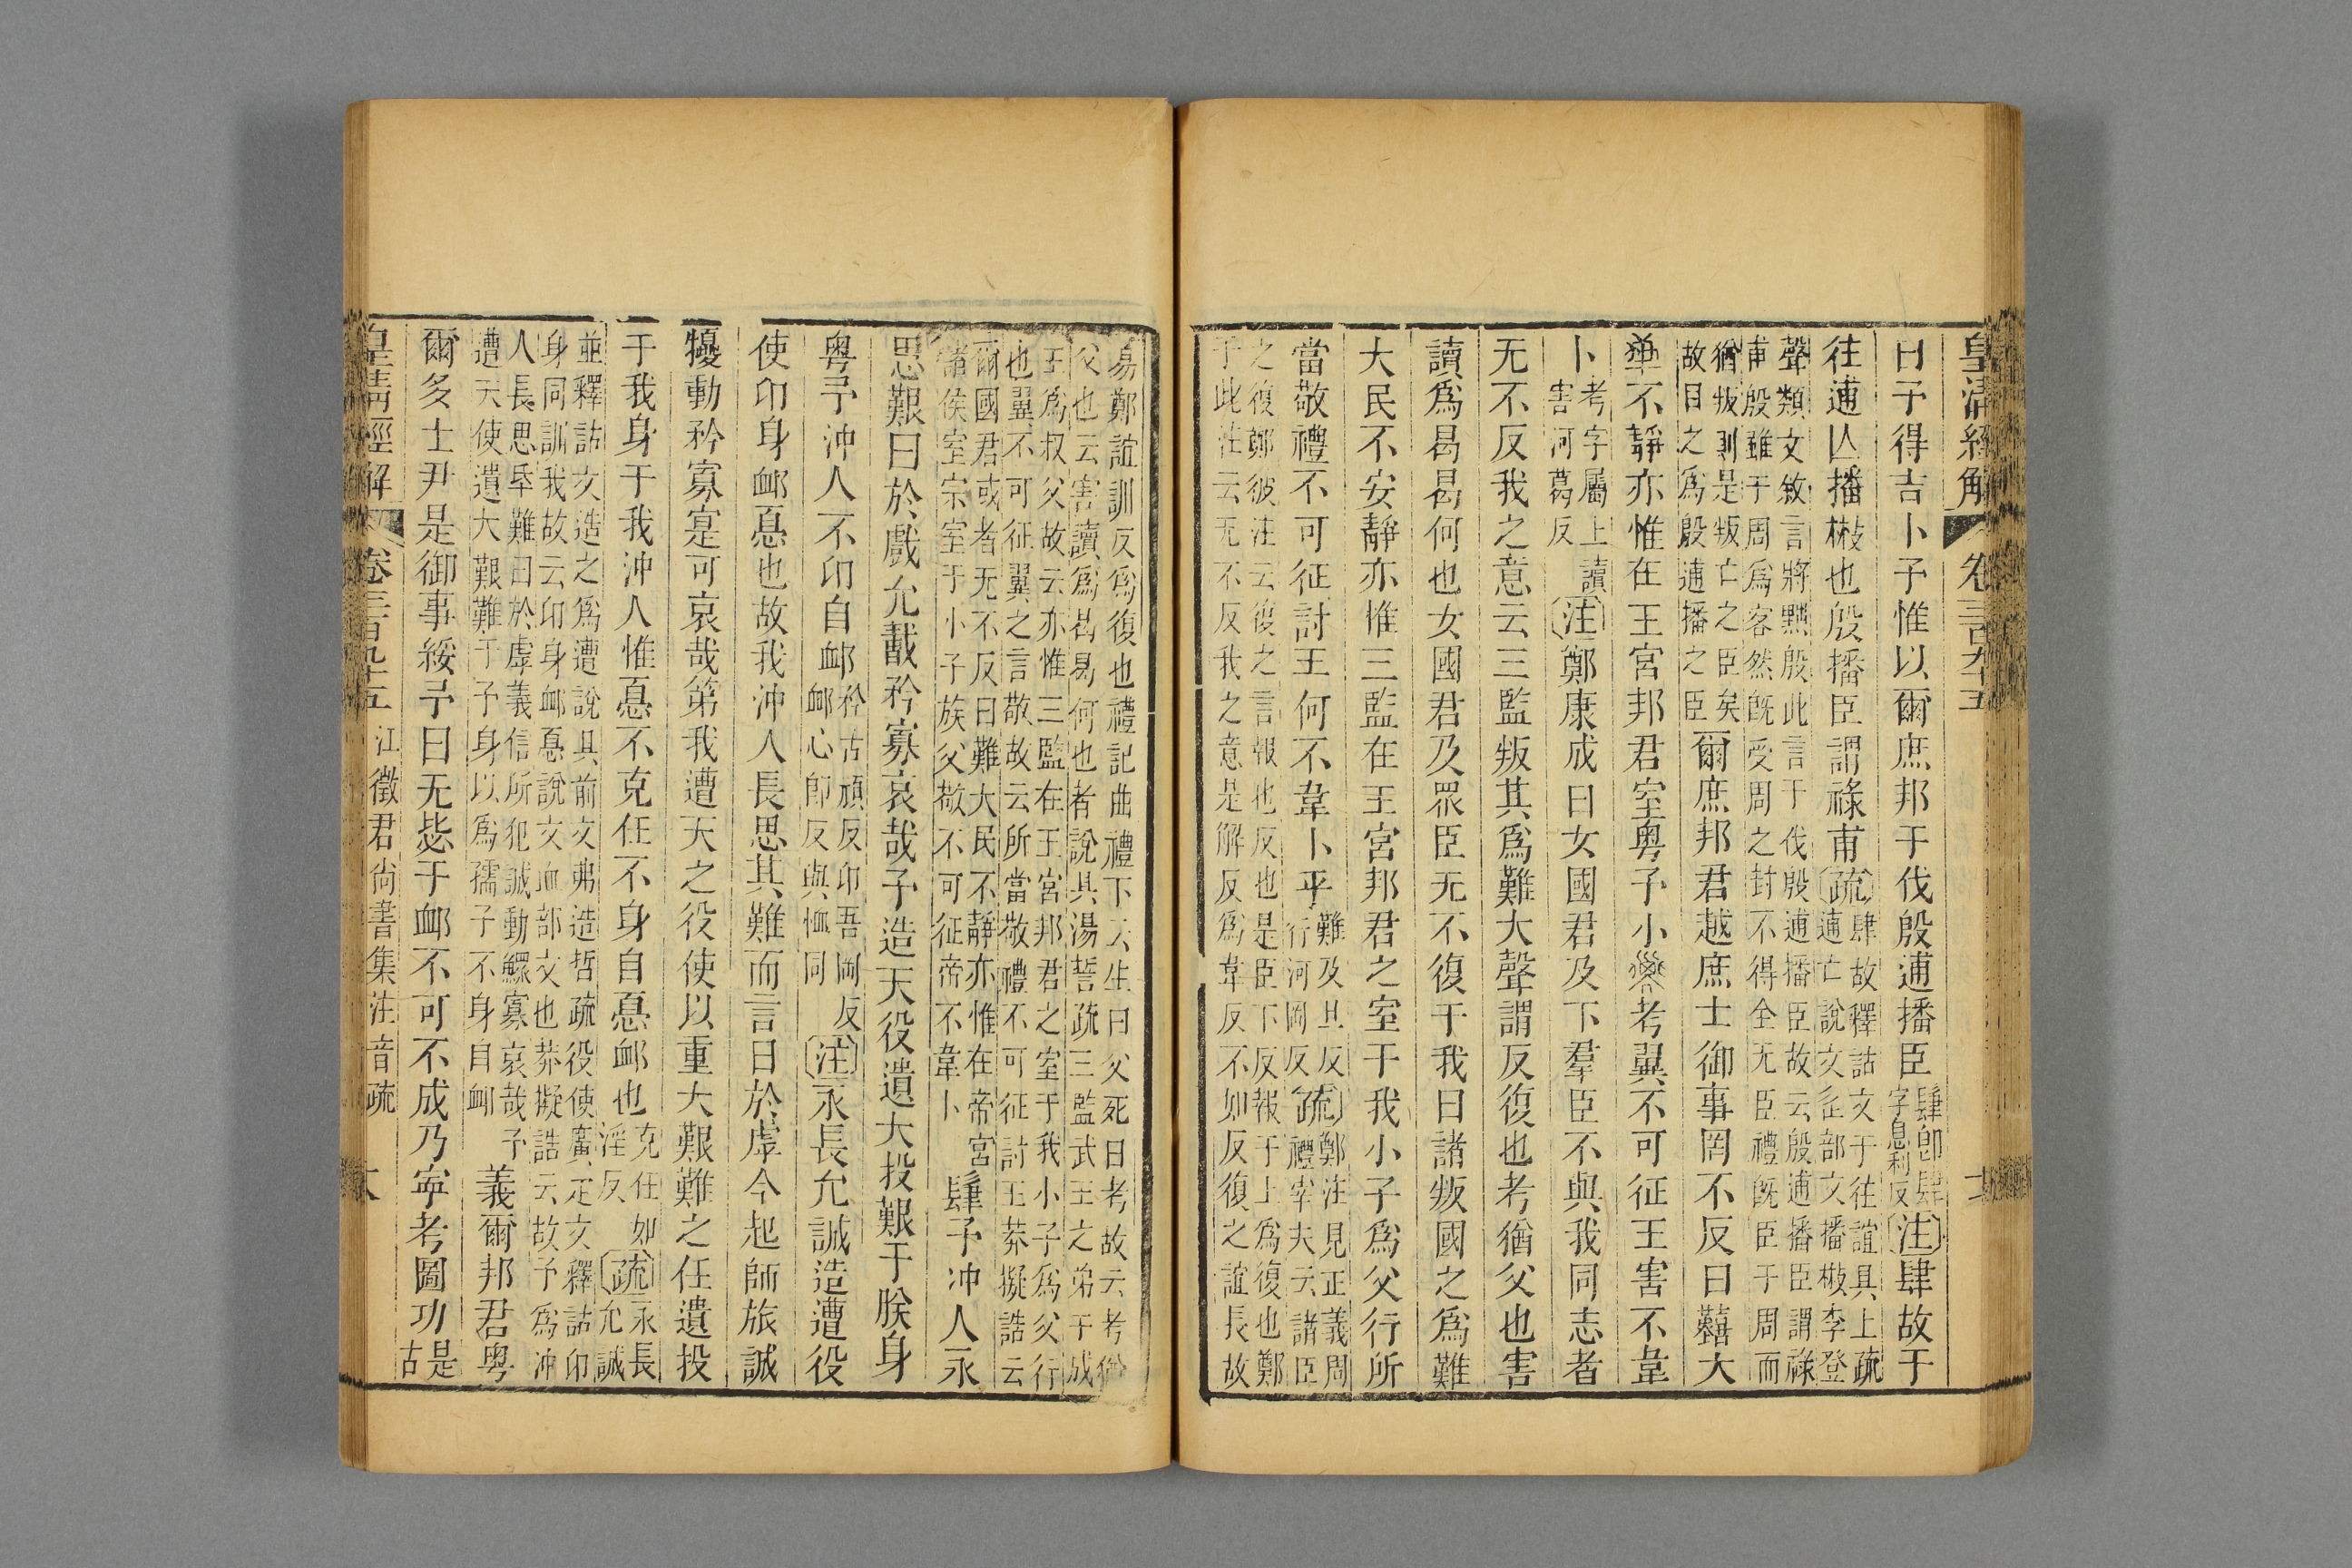 皇清經解 卷三百九十五
曰予得吉卜予惟以爾庶邦于伐殷逋播臣肆卽肆字息利反注肆故于
往逋亾播㪔也殷播臣謂祿甫疏肆故釋詁文于往誼具上疏逋亡說文辵部文播㪔李登
聲類文敘言將黜殷此言于伐殷逋播臣故云殷逋播臣謂祿甫殷雖于周爲客然旣受周之封不得全无臣禮旣臣于周而
猶叛則是叛亡之臣矣故曰之爲殷逋播之臣爾庶邦君越庶士御事罔不反曰囏大
不靜亦惟在王宮邦君室粵予小考翼不可征王害不韋
卜考字屬上讀害河葛反注鄭康成曰女國君及下羣臣不與我同志者
无不反我之意云三監叛其爲難大聲謂反復也考猶父也害
讀爲曷曷何也女國君及眾臣无不復于我曰諸叛國之爲難
大民不安靜亦惟三監在王宮邦君之室于我小子爲父行所
當敬禮不可征討王何不韋卜乎難及旦反行河岡反疏鄭注見正義周禮宰夫云諸臣
之復鄭彼注云復之言報也反也是臣下反報于上爲復也鄭于此注云无不反我之意是解反爲韋反不如反復之誼長故
易鄭誼訓反爲復也禮記曲禮下云生曰父死曰考故云考猶父也云害讀爲曷曷何也者說具湯誓疏三監武王之弟于成
王爲叔父故云亦惟三監在王宮邦君之室于我小子爲父行也翼不可征翼之言敬故云所當敬禮不可征討王莽擬誥云
爾國君或者无不反曰難大民不靜亦惟在帝宮諸侯室宗室于小子族父敬不可征帝不韋卜肆予冲人永
思艱曰於戲允蠢矜寡哀哉予造天役遺大投艱于朕身
粵予沖人不卬自卹矜古頑反卬吾岡反卹心卽反與恤同注永長允誠造遭役
使卬身卹息也故我沖人長思其難而言曰於虖今起師旅誠
擾動矜寡寔可哀哉第我遭天之役使以重大艱難之任遺投
于我身于我沖人惟息不克任不身自息卹也克任如淫反疏永長允誠
並釋詁文造之爲遭說具前文弗造哲疏役使廣疋文釋詁卬身同訓我故云卬身卹息說文血部文也莽擬誥云故予爲沖
人長思厥難曰於虖義信所犯誠動鰥寡哀哉予遭天使遺大艱難于予身以爲孺子不身自卹義爾邦君粵
爾多士尹是御事綏予曰无毖于卹不可不成乃寍考圖功是古
皇清經解 卷三百九十五 江徵君尙書集注音疏